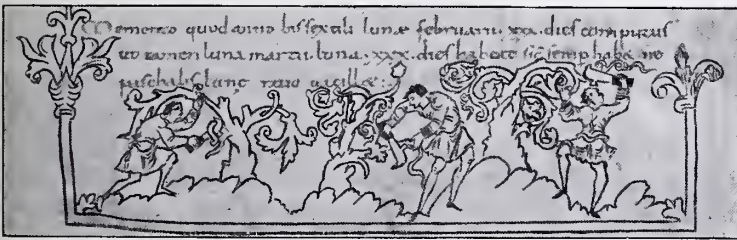 Memento quod anno bissextili lunæ februarii .xxx. dies computus
ut tamen luna martii luna .xxx. dies habeat sic semp habet ne
paschalis lunę ratio vacillæt :